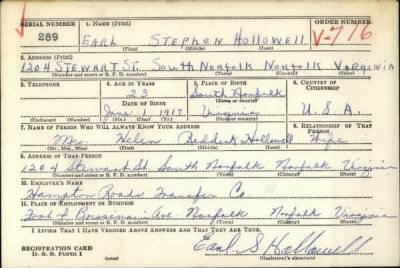 SERIAL NUMBER 1. NAME (Print) ORDER NUMBER
289 EARL STEPHEN HOLLOWELL V-716
(First) (Middle) (Last)
2. ADDRESS (Print)
1204 STEWART ST. SOUTH NORFOLK NORFOLK VIRGINIA
(Number and street or R. F. D. number) (Town) (County) (State)
3. TELEPHONE 4. AGE IN YEARS 5. PLACE OF BIRTH 6. COUNTRY OF CITIZENSHIP
23 South Norfolk
DATE OF BIRTH (Town or county)
June 1 1917 Virginia U.S.A.
(Exchange) (Number) (Mo.) (Day) (Yr.) (State or country)
7. NAME OF PERSON WHO WILL ALWAYS KNOW YOUR ADDRESS 8. RELATIONSHIP OF THAT PERSON
Mrs. Helen Hollowell Wife
(Mr., Mrs., Miss) (First) (Middle) (Last)
9. ADDRESS OF THAT PERSON
1204 Stewart St South Norfolk Norfolk Virginia
(Number and street or R. F. D. number) (Town) (County) (State)
10. EMPLOYER'S NAME
Hampton Roads Transfer Co
11. PLACE OF EMPLOYMENT OR BUSINESS
Foot of Ave. Norfolk Norfolk Virginia
(Number and street or R. F. D. number) (Town) (County) (State)
I AFFIRM THAT I HAVE VERIFIED ABOVE ANSWERS AND THAT THEY ARE TRUE.
REGISTRATION CARD
D. S. S. FORM 1 Earl S Hollowell
(Registrant's signature)